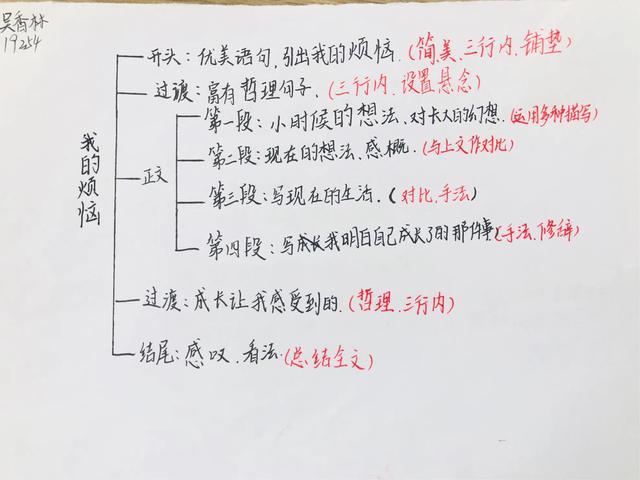 吴香林
19254
我的烦恼
开头：优美语句，引出我的烦恼.（简美、三行内、铺垫）
过渡：富有哲理句子.（三行内、设置悬念）
正文
第一段：小时候的想法、对长大的幻想.（运用多种描写）
第二段：现在的想法、感概.（与上文作对比）
第三段：写现在的生活.（对比、手法）
第四段：写成长我明白自己成长了的那件事（手法、修辞）
过渡：成长让我感受到的.（哲理、三行内）
结尾：感叹、看法.（总结全文）